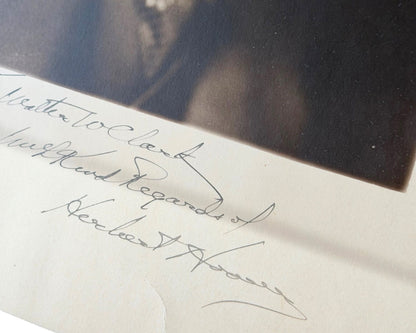 Walter W Clark
Kind Regards of
Herbert Hoover